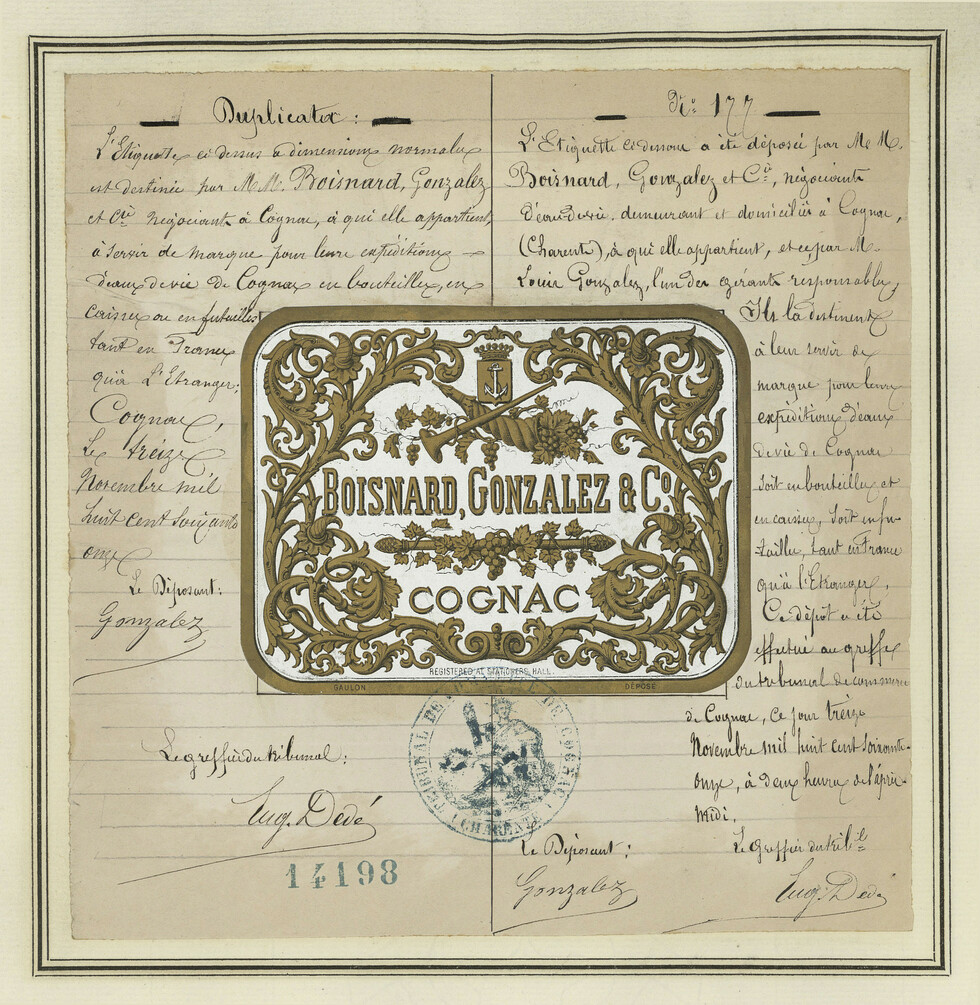 Duplicata :
L'Etiquette ci dessus a dimensions normales
est destinée par M.M. Boisnard, Gonzalez
et Cie négociants à Cognac, à qui elle appartient,
à servir de marque pour leurs expéditions
d'eaux de vie de Cognac en bouteilles, en
caisses ou en futailles
tant en France
qu'à L'Etranger;
Cognac,
Le treize
Novembre mil
huit cent soixante
onze
Le Déposant:
Gonzalez
Le greffier du tribunal:
Eug. Dedé
14198
No. 177
L'Etiquette ci dessous a été déposée par M.M.
Boisnard, Gonzalez et Cie, négociants
d'eau de vie, demeurant et domiciliés à Cognac,
(Charente), à qui elle appartient, et ce, par M.
Louis Gonzalez, l'un des gérants responsables,
Ils la destinent
à leur servir de
marque pour leurs
expéditions d'eaux
de vie de Cognac
soit en bouteilles et
en caisses, soit en fu-
tailles, tant en France
qu'à l'Etranger,
Ce dépôt a été
effectué au greffe
du tribunal de commerce
de Cognac, ce jour treize
Novembre mil huit cent soixante-
onze, à deux heures de l'après-
midi.
Le Déposant:
Le Greffier du tribl
Gonzalez
Eug. Dedé
BOISNARD, GONZALEZ & Co.
COGNAC
REGISTERED AT STATIONERS HALL.
GAULON
DÉPOSÉ
TRIBUNAL DE COMMERCE DE COGNAC
(CHARENTE)